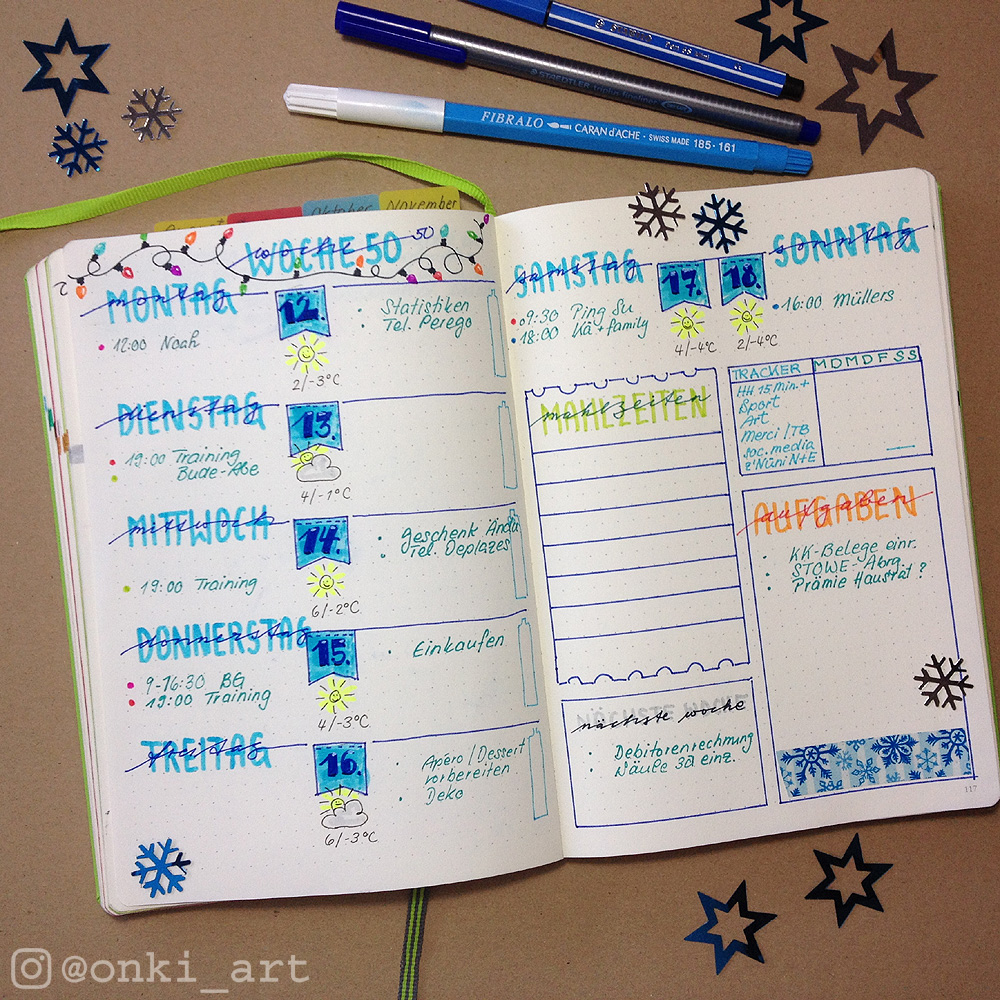 FIBRALO CARAN d'ACHE SWISS MADE 185·161
STAEDTLER
Oktober
November
WOCHE 50
woche 50
MONTAG
montag
12.
• 12:00 Noah
• Statistiken
• Tel. Perego
2/-3°C
DIENSTAG
dienstag
13.
• 19:00 Training
• Bude-Abe
4/-1°C
MITTWOCH
mittwoch
14.
• 19:00 Training
• Geschenk
• Tel. Deplazes
6/-2°C
DONNERSTAG
donnerstag
15.
• 9-16:30 BG
• 19:00 Training
• Einkaufen
4/-3°C
FREITAG
freitag
16.
• Apéro/Dessert
vorbereiten
• Deko
6/-3°C
SAMSTAG
samstag
17.
• 9:30 Ping Su
• 18:00 Kä+family
4/-4°C
SONNTAG
sonntag
18.
• 16:00 Müllers
2/-4°C
MAHLZEITEN
mahlzeiten
TRACKER MDMDFSS
HH 15 Min.+
Sport
Art
Merci/TB
soc. media
z'Nüni N+E
AUFGABEN
aufgaben
• KK-Belege einr.
• STOWE-Abrg.
• Prämie Hausrat?
NÄCHSTE WOCHE
nächste woche
• Debitorenrechnung
• einz.
117
@onki_art